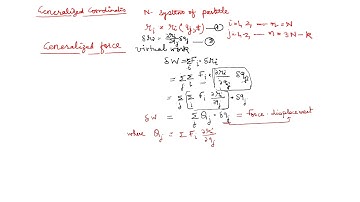 Generalized Coordinates
N- System of particle
r_i = r_i (q_j, t) — ① i = 1, 2, --- n = N
j = 1, 2, --- n = 3N - k
δr_i = ∂r_i/∂q_j δq_j — ②
Generalized force
virtual work
δW = Σ_i F_i · δr_i
= Σ_i Σ_j F_i · ∂r_i/∂q_j δq_j
= Σ_j [ Σ_i F_i ∂r_i/∂q_j ] · δq_j
δW = Σ_j Q_j · δq_j = force · displacement
where Q_j = Σ F_i ∂r_i/∂q_j